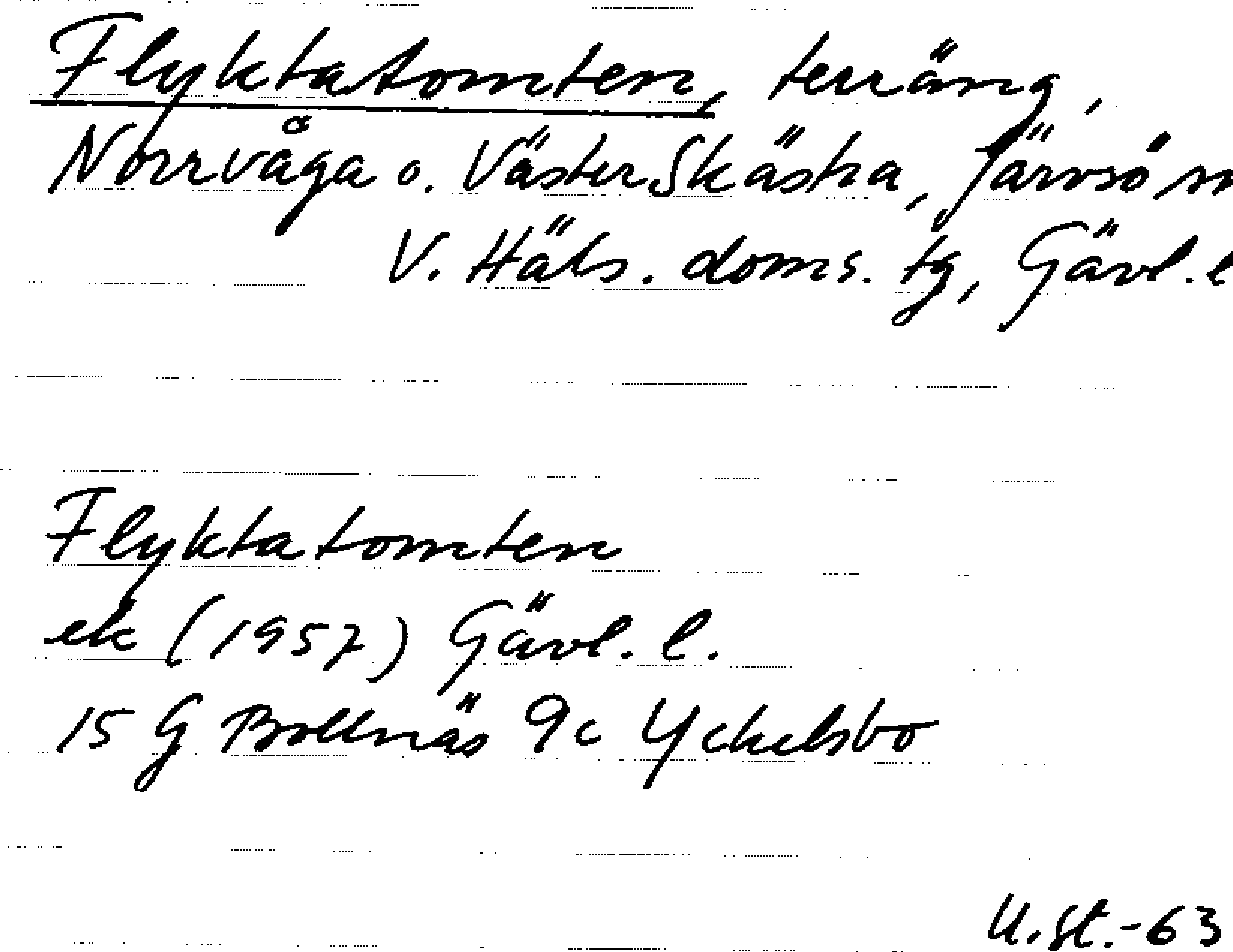 Flyktatomten, terräng,
Norrvåga o. VästerSkästra, Järvsö
V. Häls. doms. tg, Gävl.
Flyktatomten
ek (1957) Gävl. l.
15 G Bollnäs 9c Yckelsbo
U.st.-63